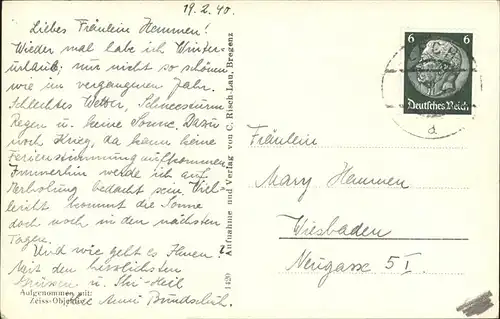 19.2.40.
Liebes Fräulein Hammen!
Wieder mal habe ich Winter-
urlaub; nur nicht so schönen
wie im vergangenen Jahr.
Schlechtes Wetter, Schneesturm
Regen u. keine Sonne. Dazu
noch Krieg, da kann keine
Ferienstimmung aufkommen.
Immerhin werde ich auf
Erholung bedacht sein. Viel-
leicht kommt die Sonne
doch noch in den nächsten
Tagen.
Und wie geht es Ihnen?
Mit den herzlichsten
Grüssen u. Ski-Heil
Anni
Aufgenommen mit:
Zeiss-Objektiv
1420 Aufnahme und Verlag von C. Risch-Lau, Bregenz
6 6
Deutsches Reich
a
Fräulein
Mary Hammen
Wiesbaden
Neugasse 5 I.